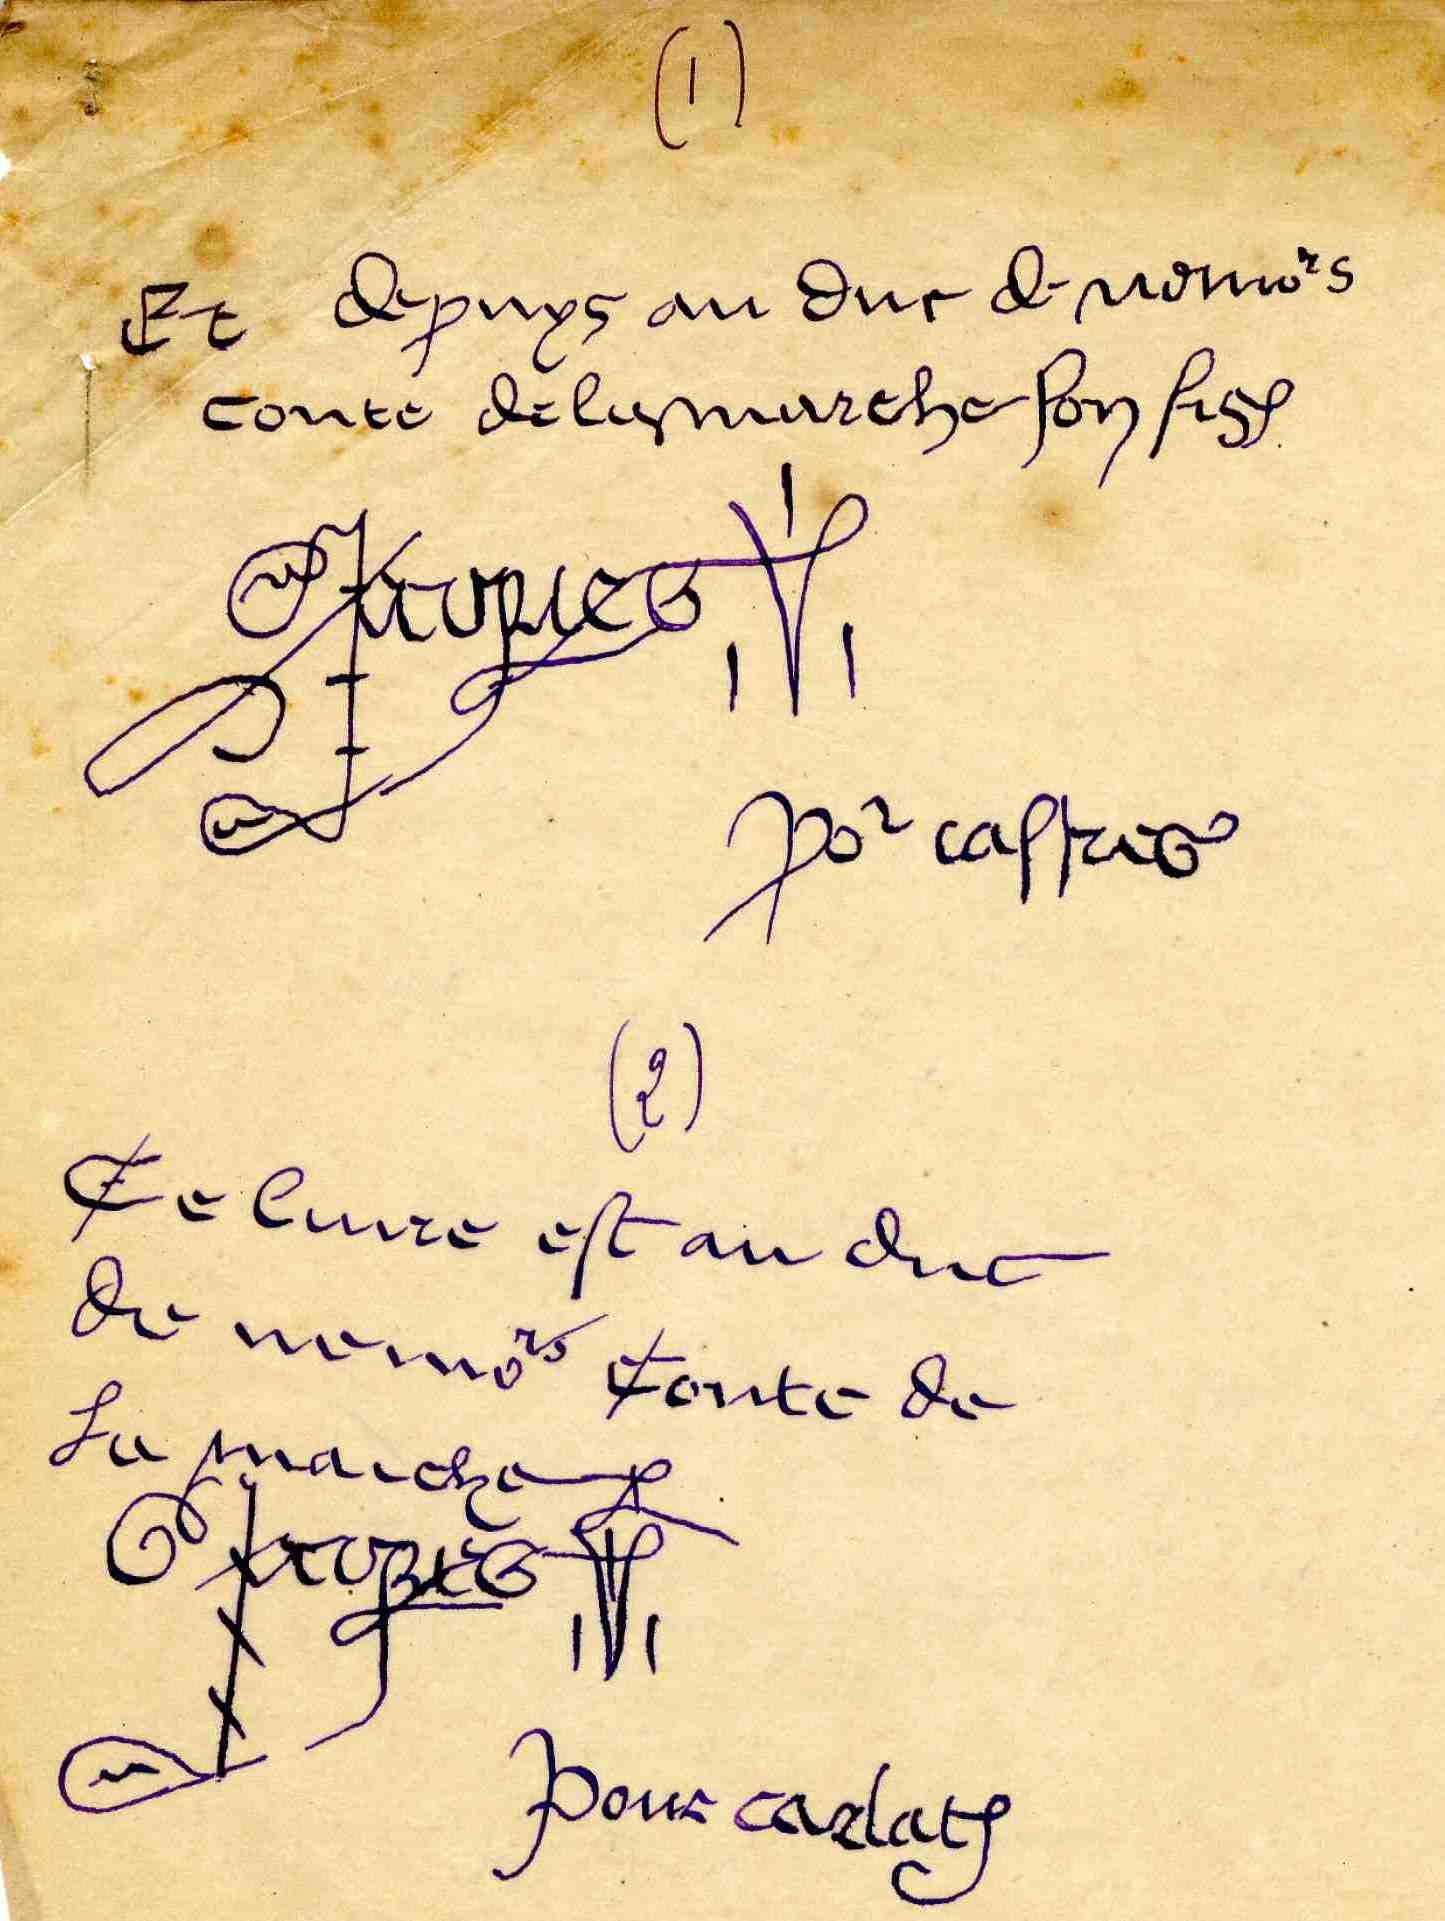 (1)
Et depuys au duc de nemors
conte de la marche son filz
Jaques
por castres
(2)
Ce livre est au duc
de nemors Conte de
La marche
Jaques
pour carlat